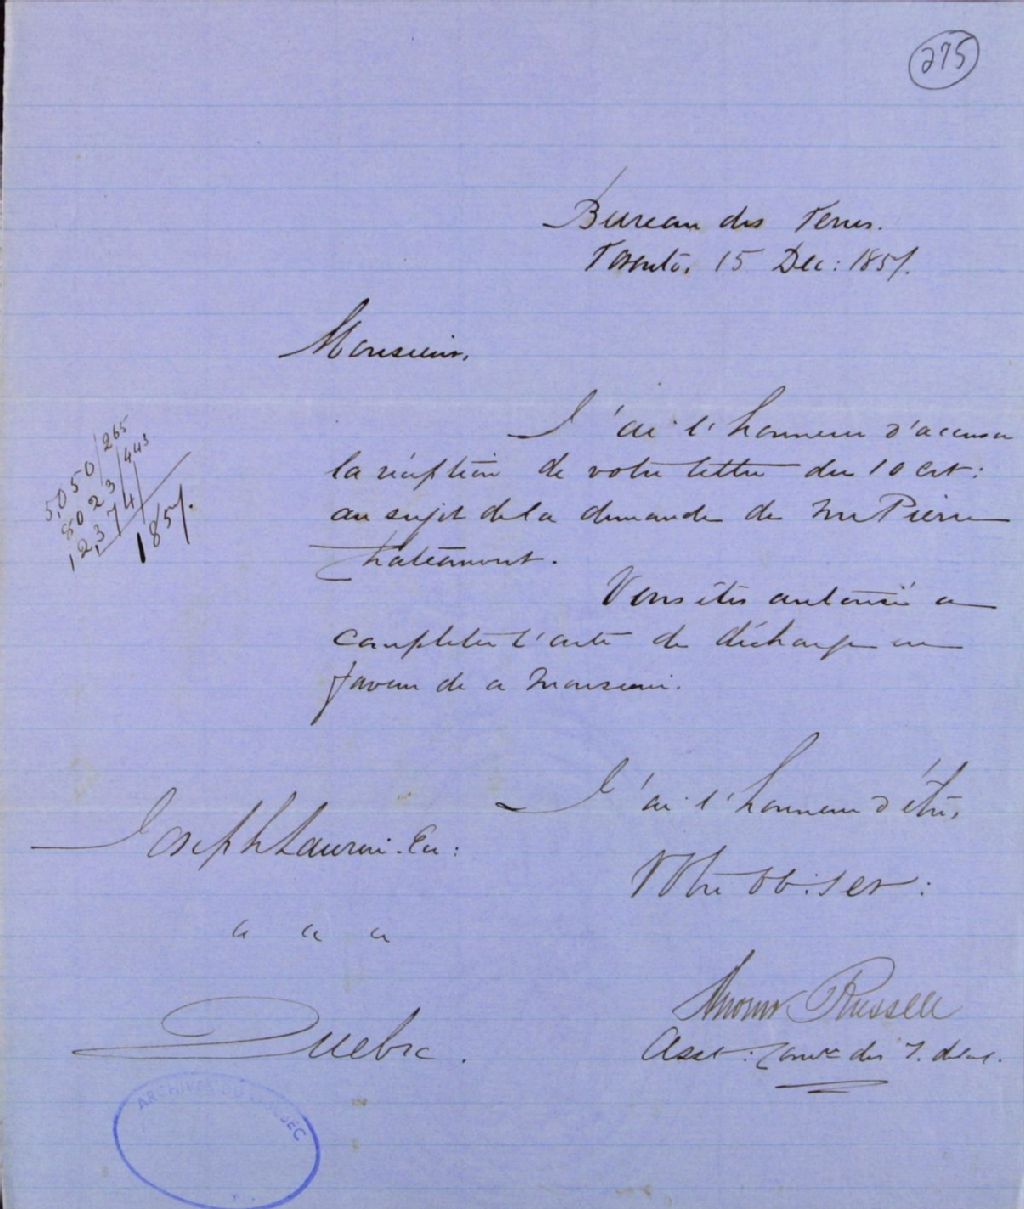 275
Bureau des Terres.
Toronto, 15 Dec: 1857.
Monsieur,
J'ai l'honneur d'accuser
la réception de votre lettre du 10 crt:
au sujet de la demande de Mr Pierre
Vous êtes autorisé a
completer l'acte de décharge en
faveur de ce Monsieur.
5,050/265
8023/443
12,374/
1857.
J'ai l'honneur d'être,
Votre ob. ser:
Joseph Laurin. Ecr:
a a a
Quebec.
Russell
Asst: Comre des T. de la C.
ARCHIVES DU QUÉBEC